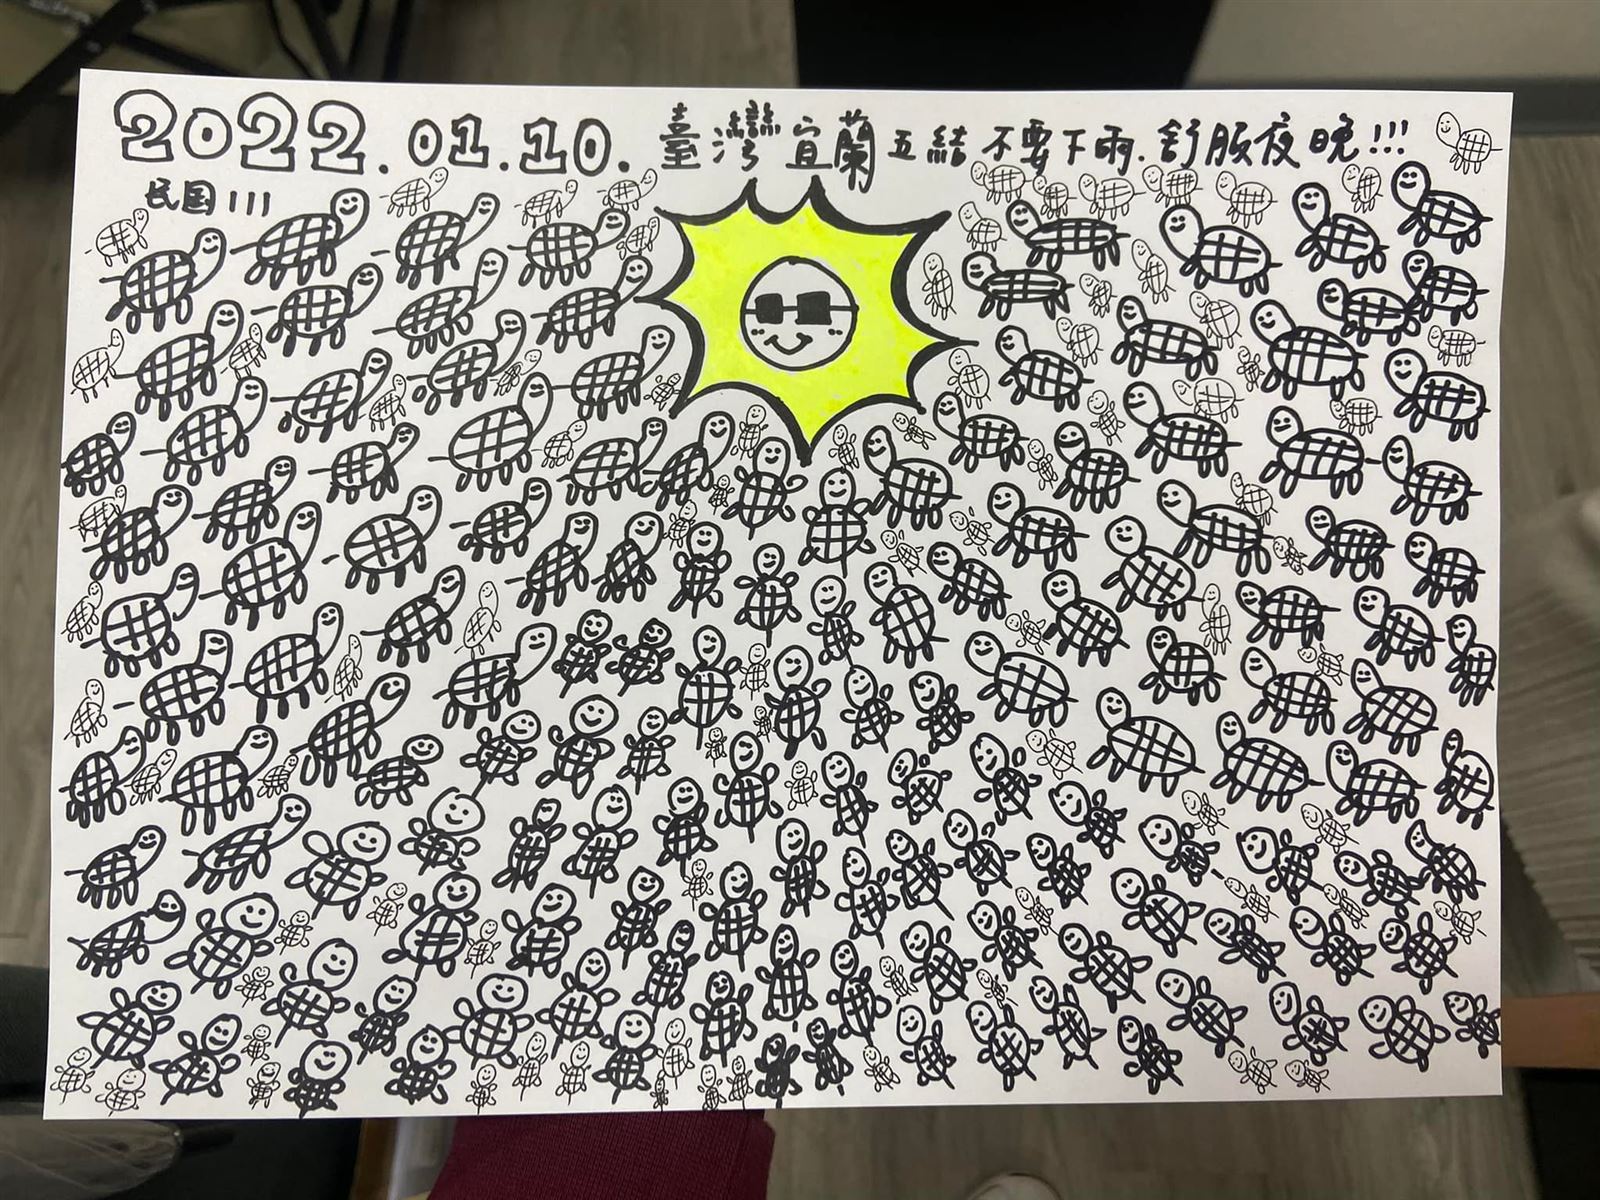 2022.01.10. 臺灣宜蘭五結不要下雨.舒服夜晚!!!
民国111